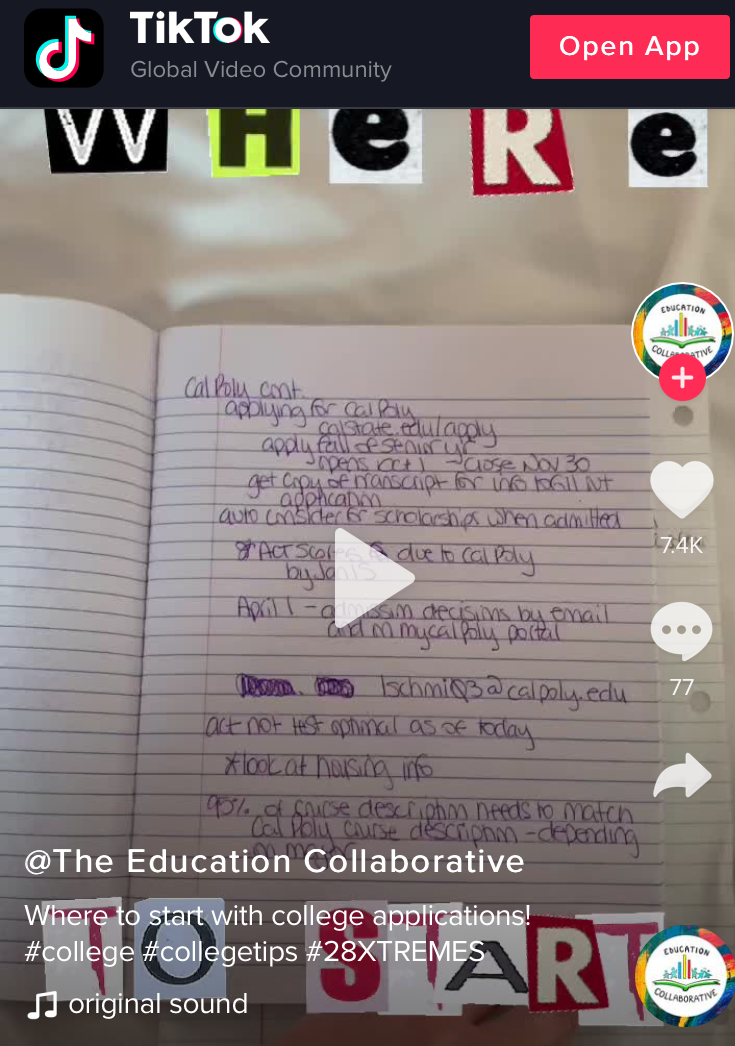 TikTok
Global Video Community
Open App
WHeRe
EDUCATION
COLLABORATIVE
Cal Poly cont.
applying for Cal Poly
calstate.edu/apply
apply fall of senior yr
opens oct 1 → close Nov 30
get copy of transcript for info to fill out
application
auto consider for scholarships when admitted
7.4K
ACT Scores due to Cal Poly
by Jan 15
April 1 - admission decisions by email
and on my calpoly portal
77
@calpoly.edu
act not test optional as of today
*look at housing info
90% of course description needs to match
Cal Poly course description - depending
on major
@The Education Collaborative
Where to start with college applications!
#college #collegetips #28XTREMES
TO START
original sound
EDUCATION
COLLABORATIVE